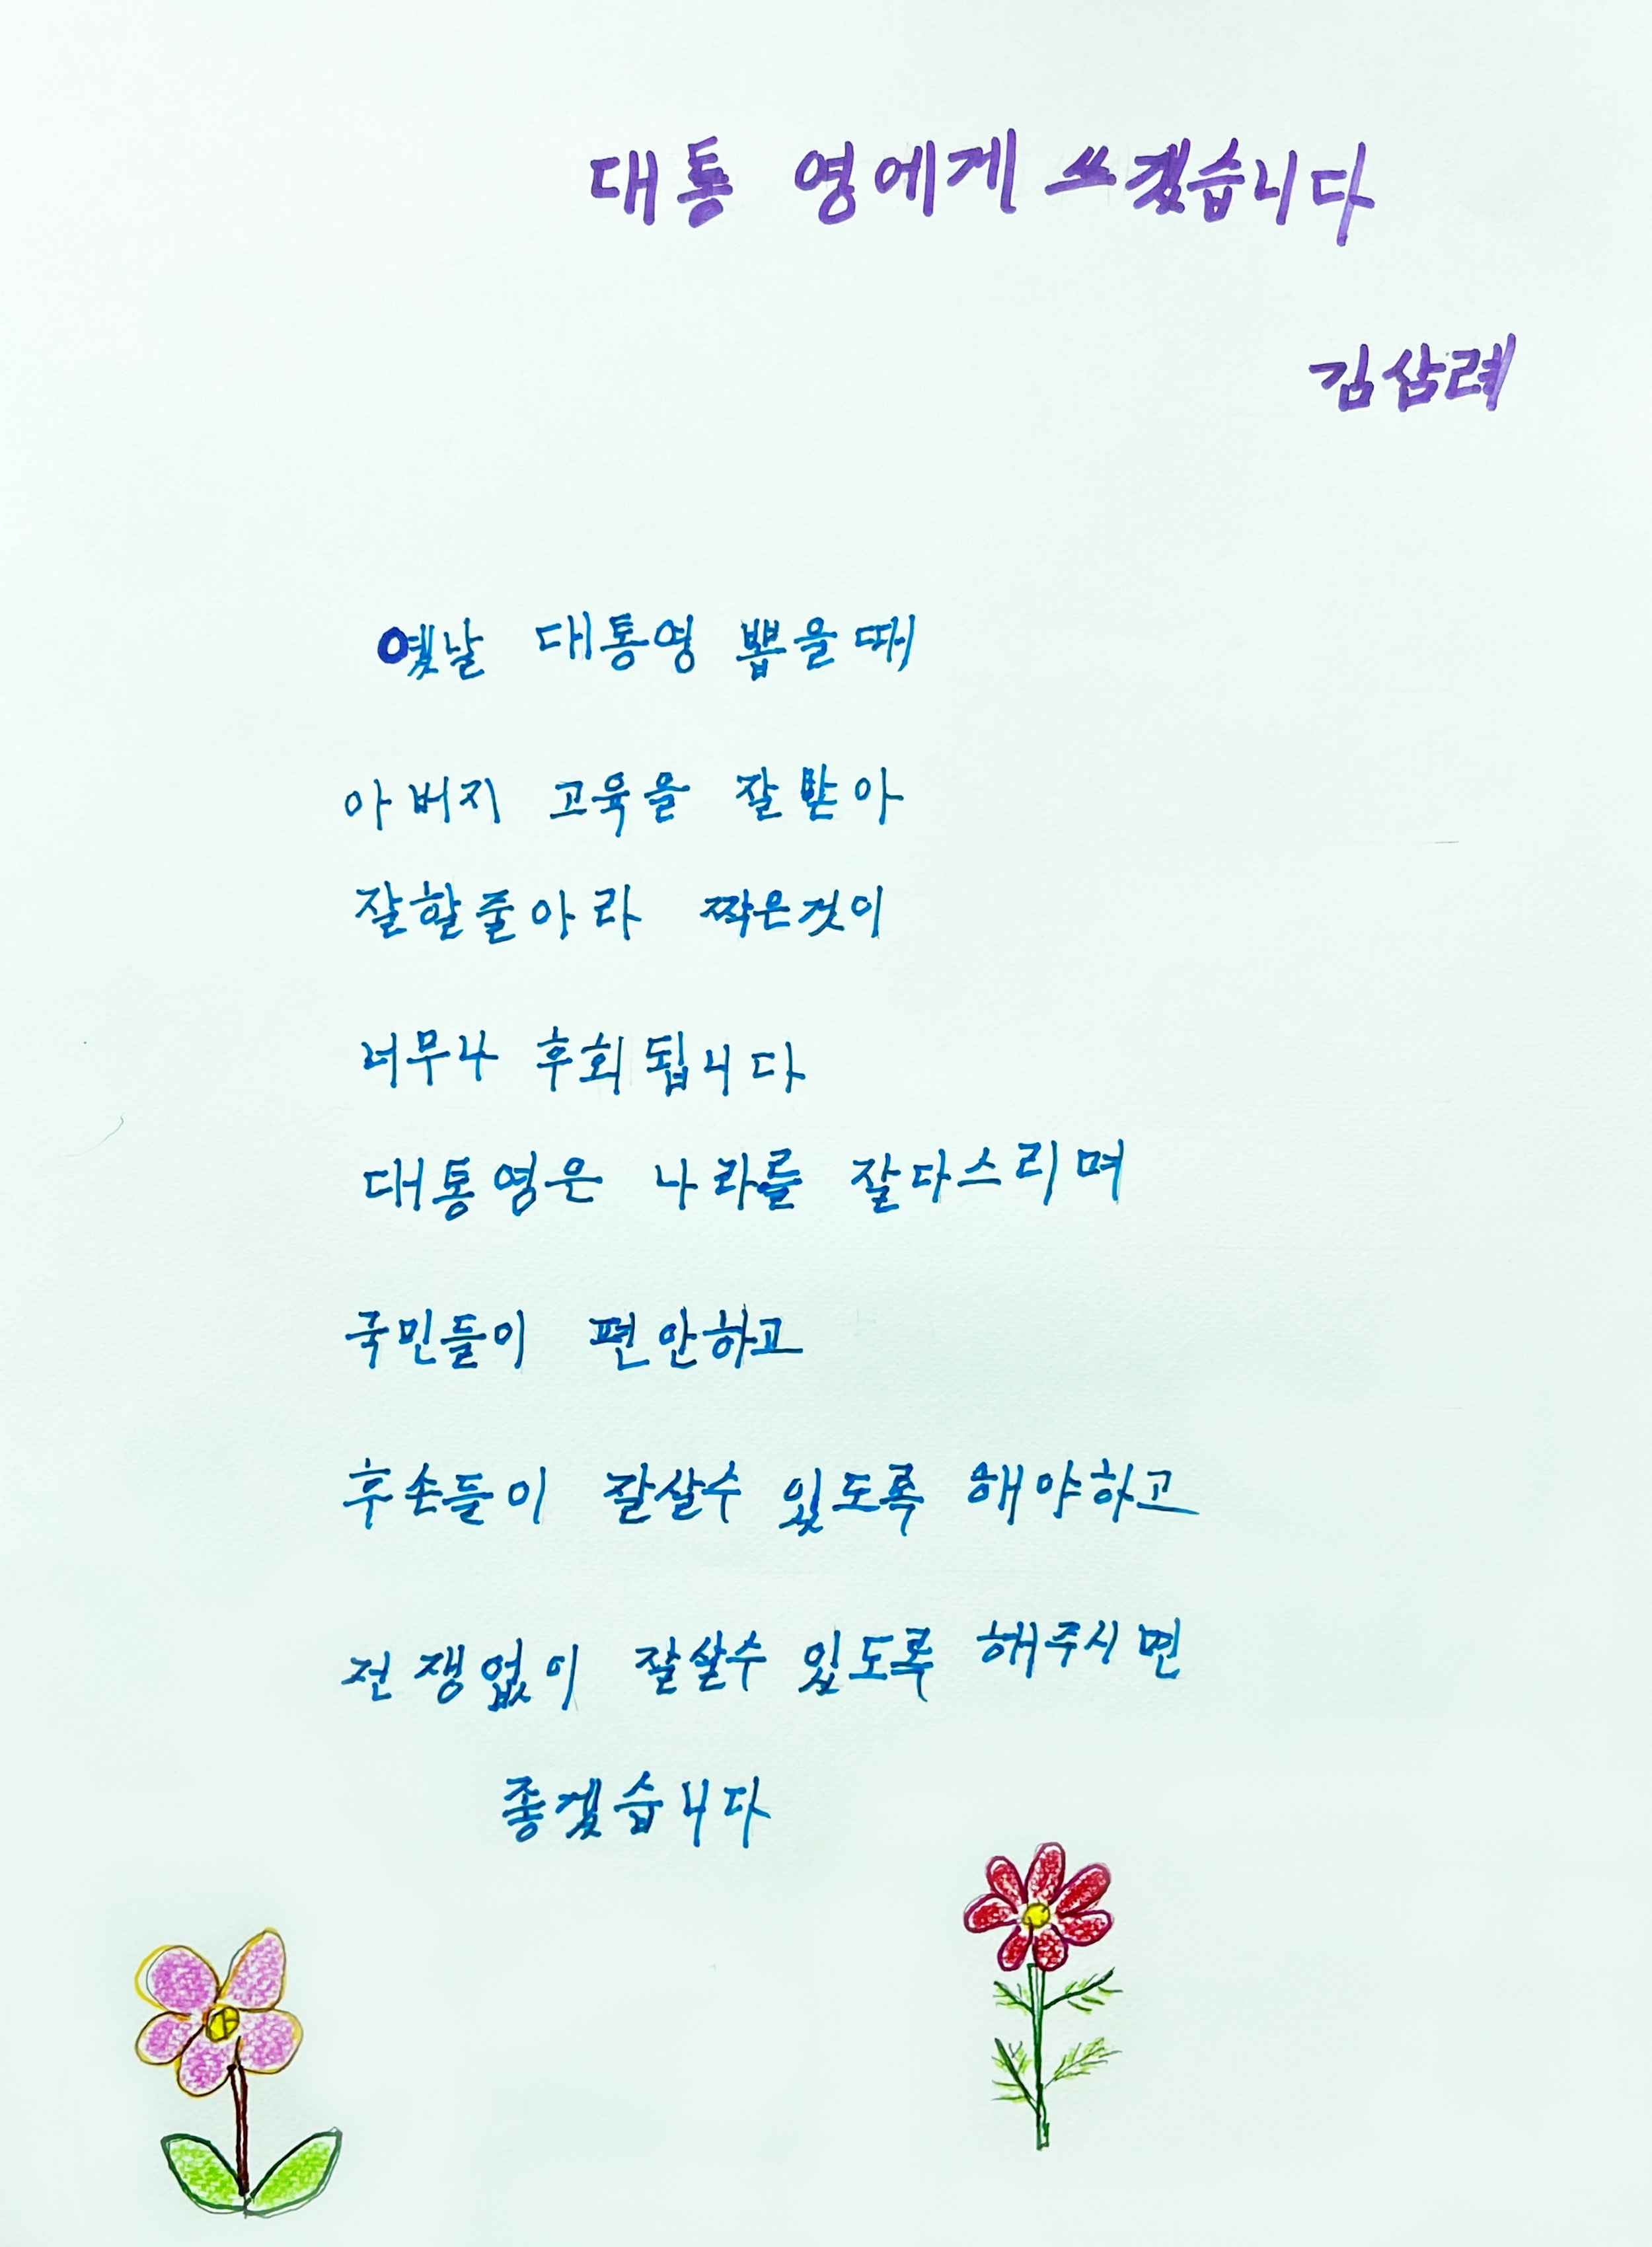 대통 영에게 쓰겠습니다
김삼례
옛날 대통영 뽑을때
아버지 고육을 잘 받아
잘할줄아라 짝은것이
너무나 후회됩니다
대통영은 나라를 잘다스리며
국민들이 편안하고
후손들이 잘살수 있도록 해야하고
전쟁없이 잘살수 있도록 해주시면
좋겠습니다